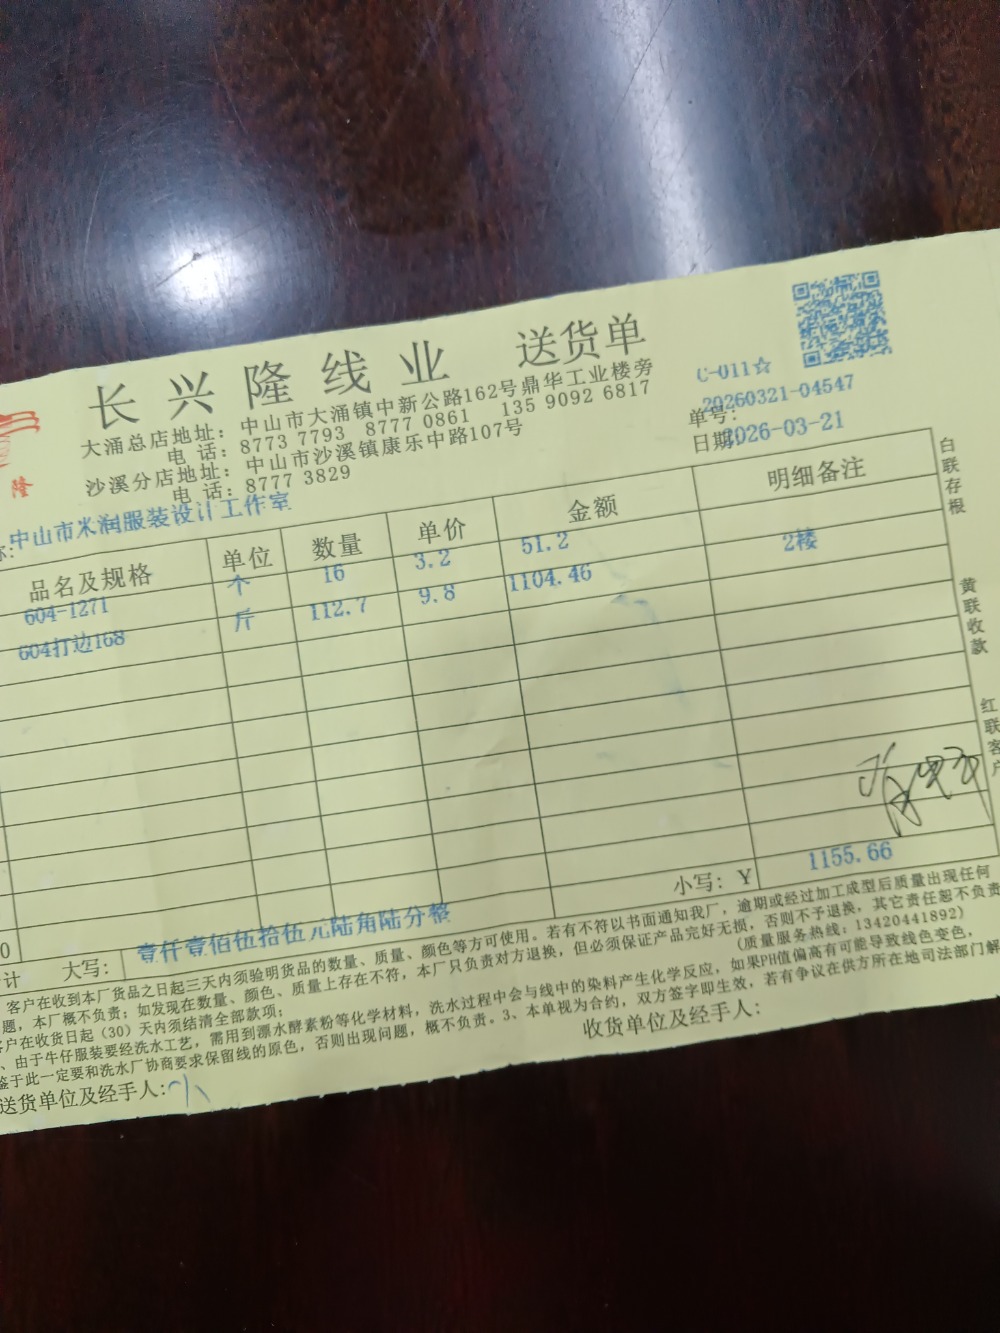 长兴隆线业 送货单
C-011☆
大涌总店地址：中山市大涌镇中新公路162号鼎华工业楼旁
电 话：8773 7793 8777 0861 135 9092 6817
沙溪分店地址：中山市沙溪镇康乐中路107号
电 话：8777 3829
隆
单号：20260321-04547
日期：2026-03-21
称：中山市米润服装设计工作室
品名及规格 单位 数量 单价 金额 明细备注
604-1271 个 16 3.2 51.2 2楼
604打边168 斤 112.7 9.8 1104.46
白联存根
黄联收款
红联客户
小写：￥ 1155.66
计 大写：壹仟壹佰伍拾伍元陆角陆分整
客户在收到本厂货品之日起三天内须验明货品的数量、质量、颜色等方可使用。若有不符以书面通知我厂，逾期或经过加工成型后质量出现任何
题，本厂概不负责；如发现在数量、颜色、质量上存在不符，本厂只负责对方退换，但必须保证产品完好无损，否则不予退换，其它责任恕不负责
客户在收货日起（30）天内须结清全部款项； （质量服务热线：13420441892）
、由于牛仔服装要经洗水工艺，需用到漂水酵素粉等化学材料，洗水过程中会与线中的染料产生化学反应，如果PH值偏高有可能导致线色变色，
鉴于此一定要和洗水厂协商要求保留线的原色，否则出现问题，概不负责。3、本单视为合约，双方签字即生效，若有争议在供方所在地司法部门解
送货单位及经手人：小
收货单位及经手人：